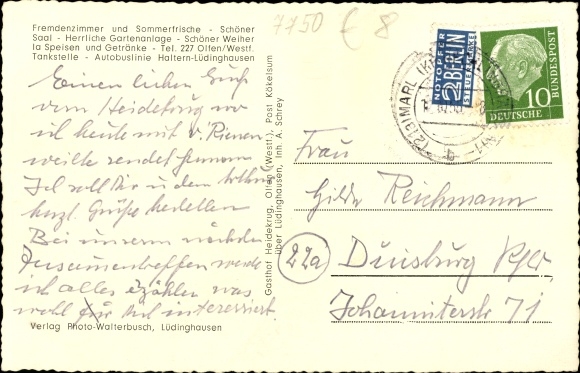 Fremdenzimmer und Sommerfrische - Schöner
Saal - Herrliche Gartenanlage - Schöner Weiher
Ia Speisen und Getränke - Tel. 227 Olfen/Westf.
Tankstelle - Autobuslinie Haltern-Lüdinghausen
7750 € 8
Einen lieben Gruß
vom Heidekrug wo
ich heute mit
weilte
Ich soll Dir u dem
herzl. Grüße bestellen
Bei unserem nächsten
Zusammentreffen werde
ich alles erzählen was
wohl für Dich interessiert.
Verlag Photo-Walterbusch, Lüdinghausen
Gasthof Heidekrug, Olfen (Westf.), Post Kökelsum
über Lüdinghausen, Inh. A. Schrey
NOTOPFER
2 BERLIN
STEUERMARKE
(21a) MARL (KR
b
10
DEUTSCHE
BUNDESPOST
Frau
Hilde Reichmann
22a Duisburg
Johanniterstr 71